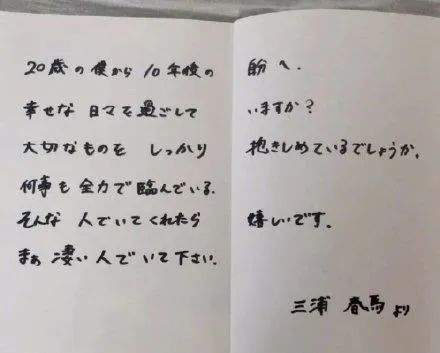 20歳の僕から10年後の自分へ。
幸せな日々を過ごしていますか?
大切なものをしっかり抱きしめているでしょうか。
何事も全力で臨んでいる。
そんな人でいてくれたら嬉しいです。
まぁ凄い人でいて下さい。
三浦春馬より